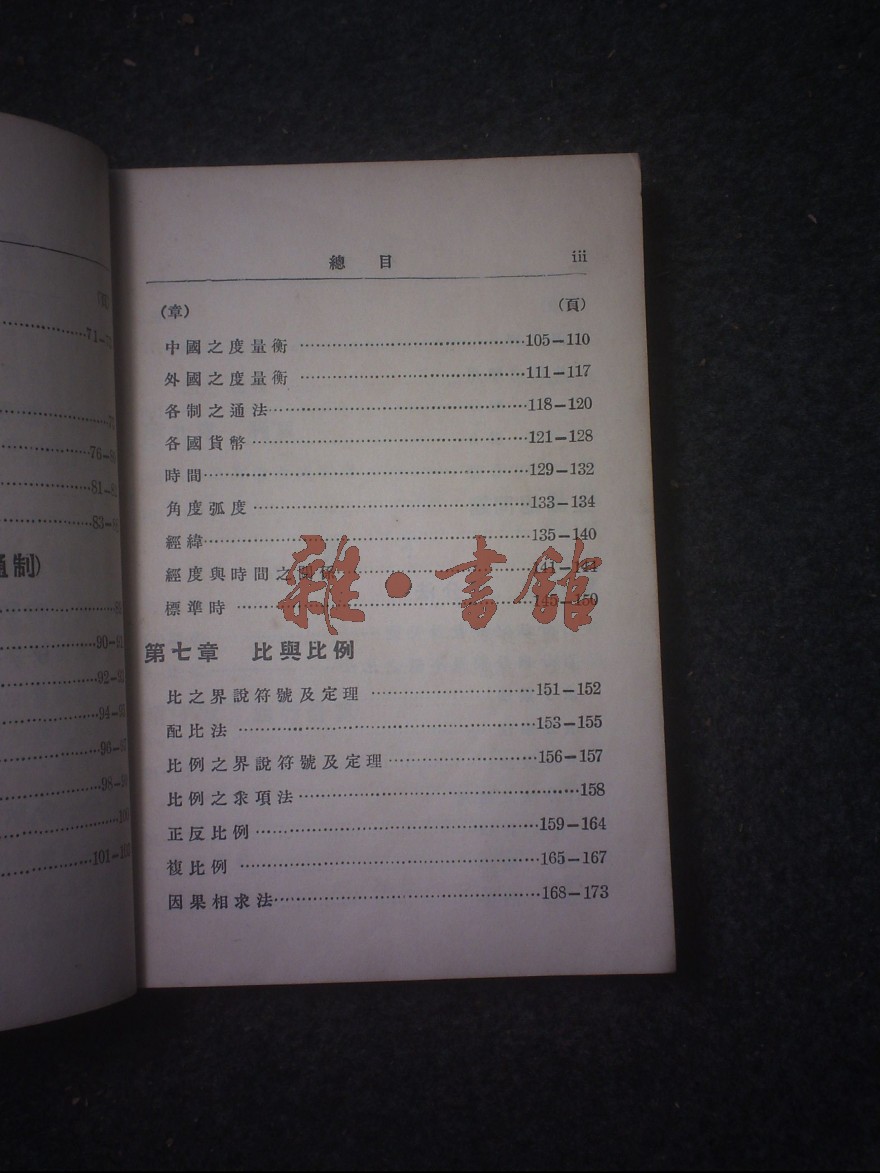 71-
7
76-8
81-8
83-
通制)
8
90-91
92-93
94-95
96-97
98-9
10
101-10
總 目 iii
(章) (頁)
中國之度量衡 …… 105-110
外國之度量衡 …… 111-117
各制之通法 …… 118-120
各國貨幣 …… 121-128
時間 …… 129-132
角度弧度 …… 133-134
經緯 …… 135-140
經度與時間之關係 …… 141-144
標準時 …… 145-150
雜·書館
第七章 比與比例
比之界說符號及定理 …… 151-152
配比法 …… 153-155
比例之界說符號及定理 …… 156-157
比例之求項法 …… 158
正反比例 …… 159-164
複比例 …… 165-167
因果相求法 …… 168-173